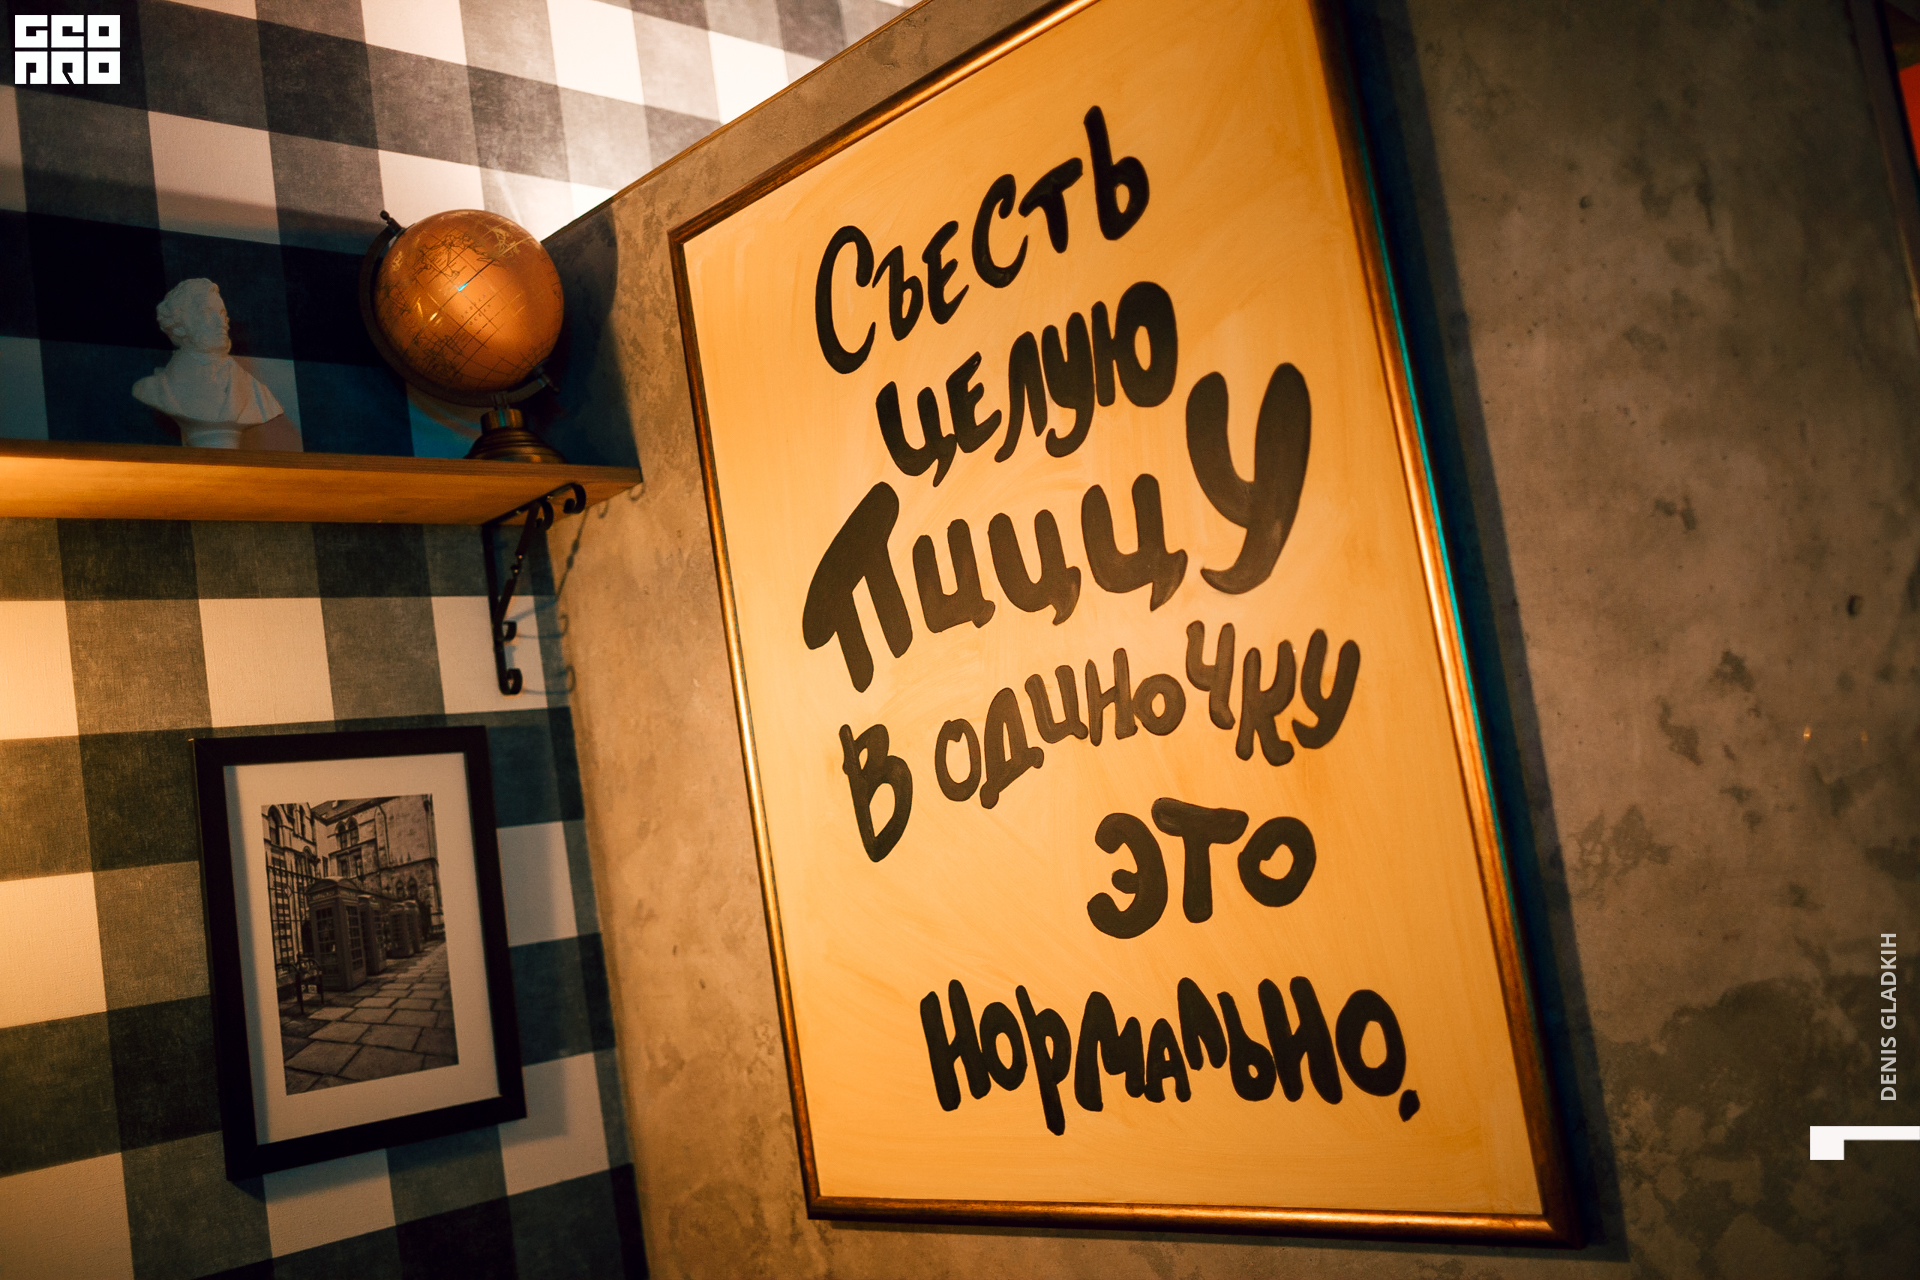 GEO
PRO
Съесть
целую
Пиццу
в одиночку
это
нормально.
DENIS GLADKIH